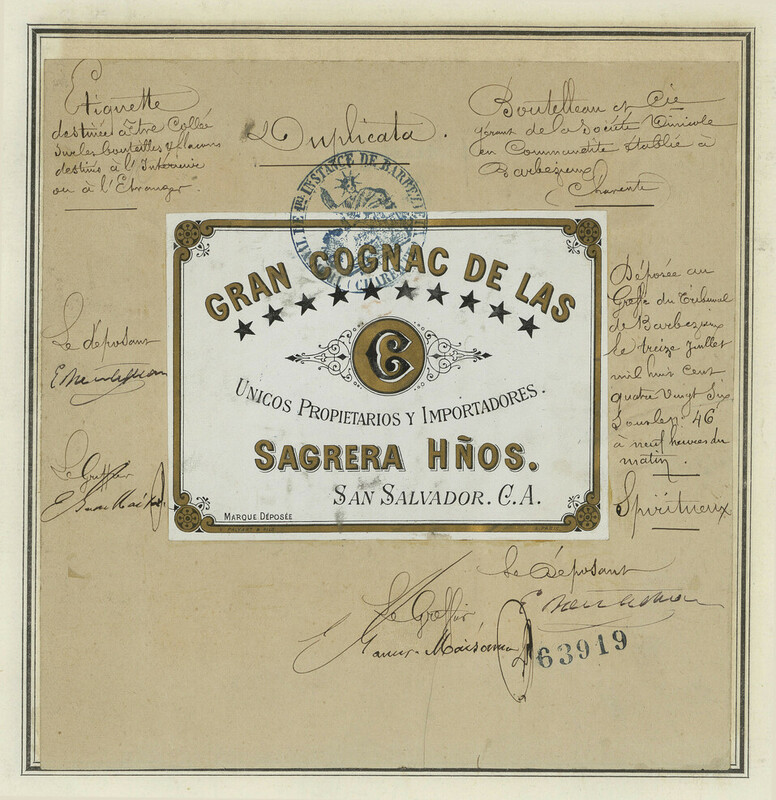 Etiquette
destinée à être Collée
sur les bouteilles & flacons
destinés à l'Intérieur
ou à l'Etranger.
Duplicata.
Boutelleau et Cie
gérant de la Société Vinicole
en Commandite établie à
Barbezieux
Charente
INSTANCE DE BARBEZIEUX
GRAN COGNAC DE LAS
C
UNICOS PROPIETARIOS Y IMPORTADORES.
SAGRERA HÑOS.
SAN SALVADOR. C.A.
MARQUE DÉPOSÉE
Le déposant
Le Greffier
Déposée au
Greffe du Tribunal
de Barbezieux
le treize Juillet
mil huit cent
quatre vingt Six
Sous le n° 46
à neuf heures du
matin.
Spiritueux
Le Déposant
Le Greffier
63919